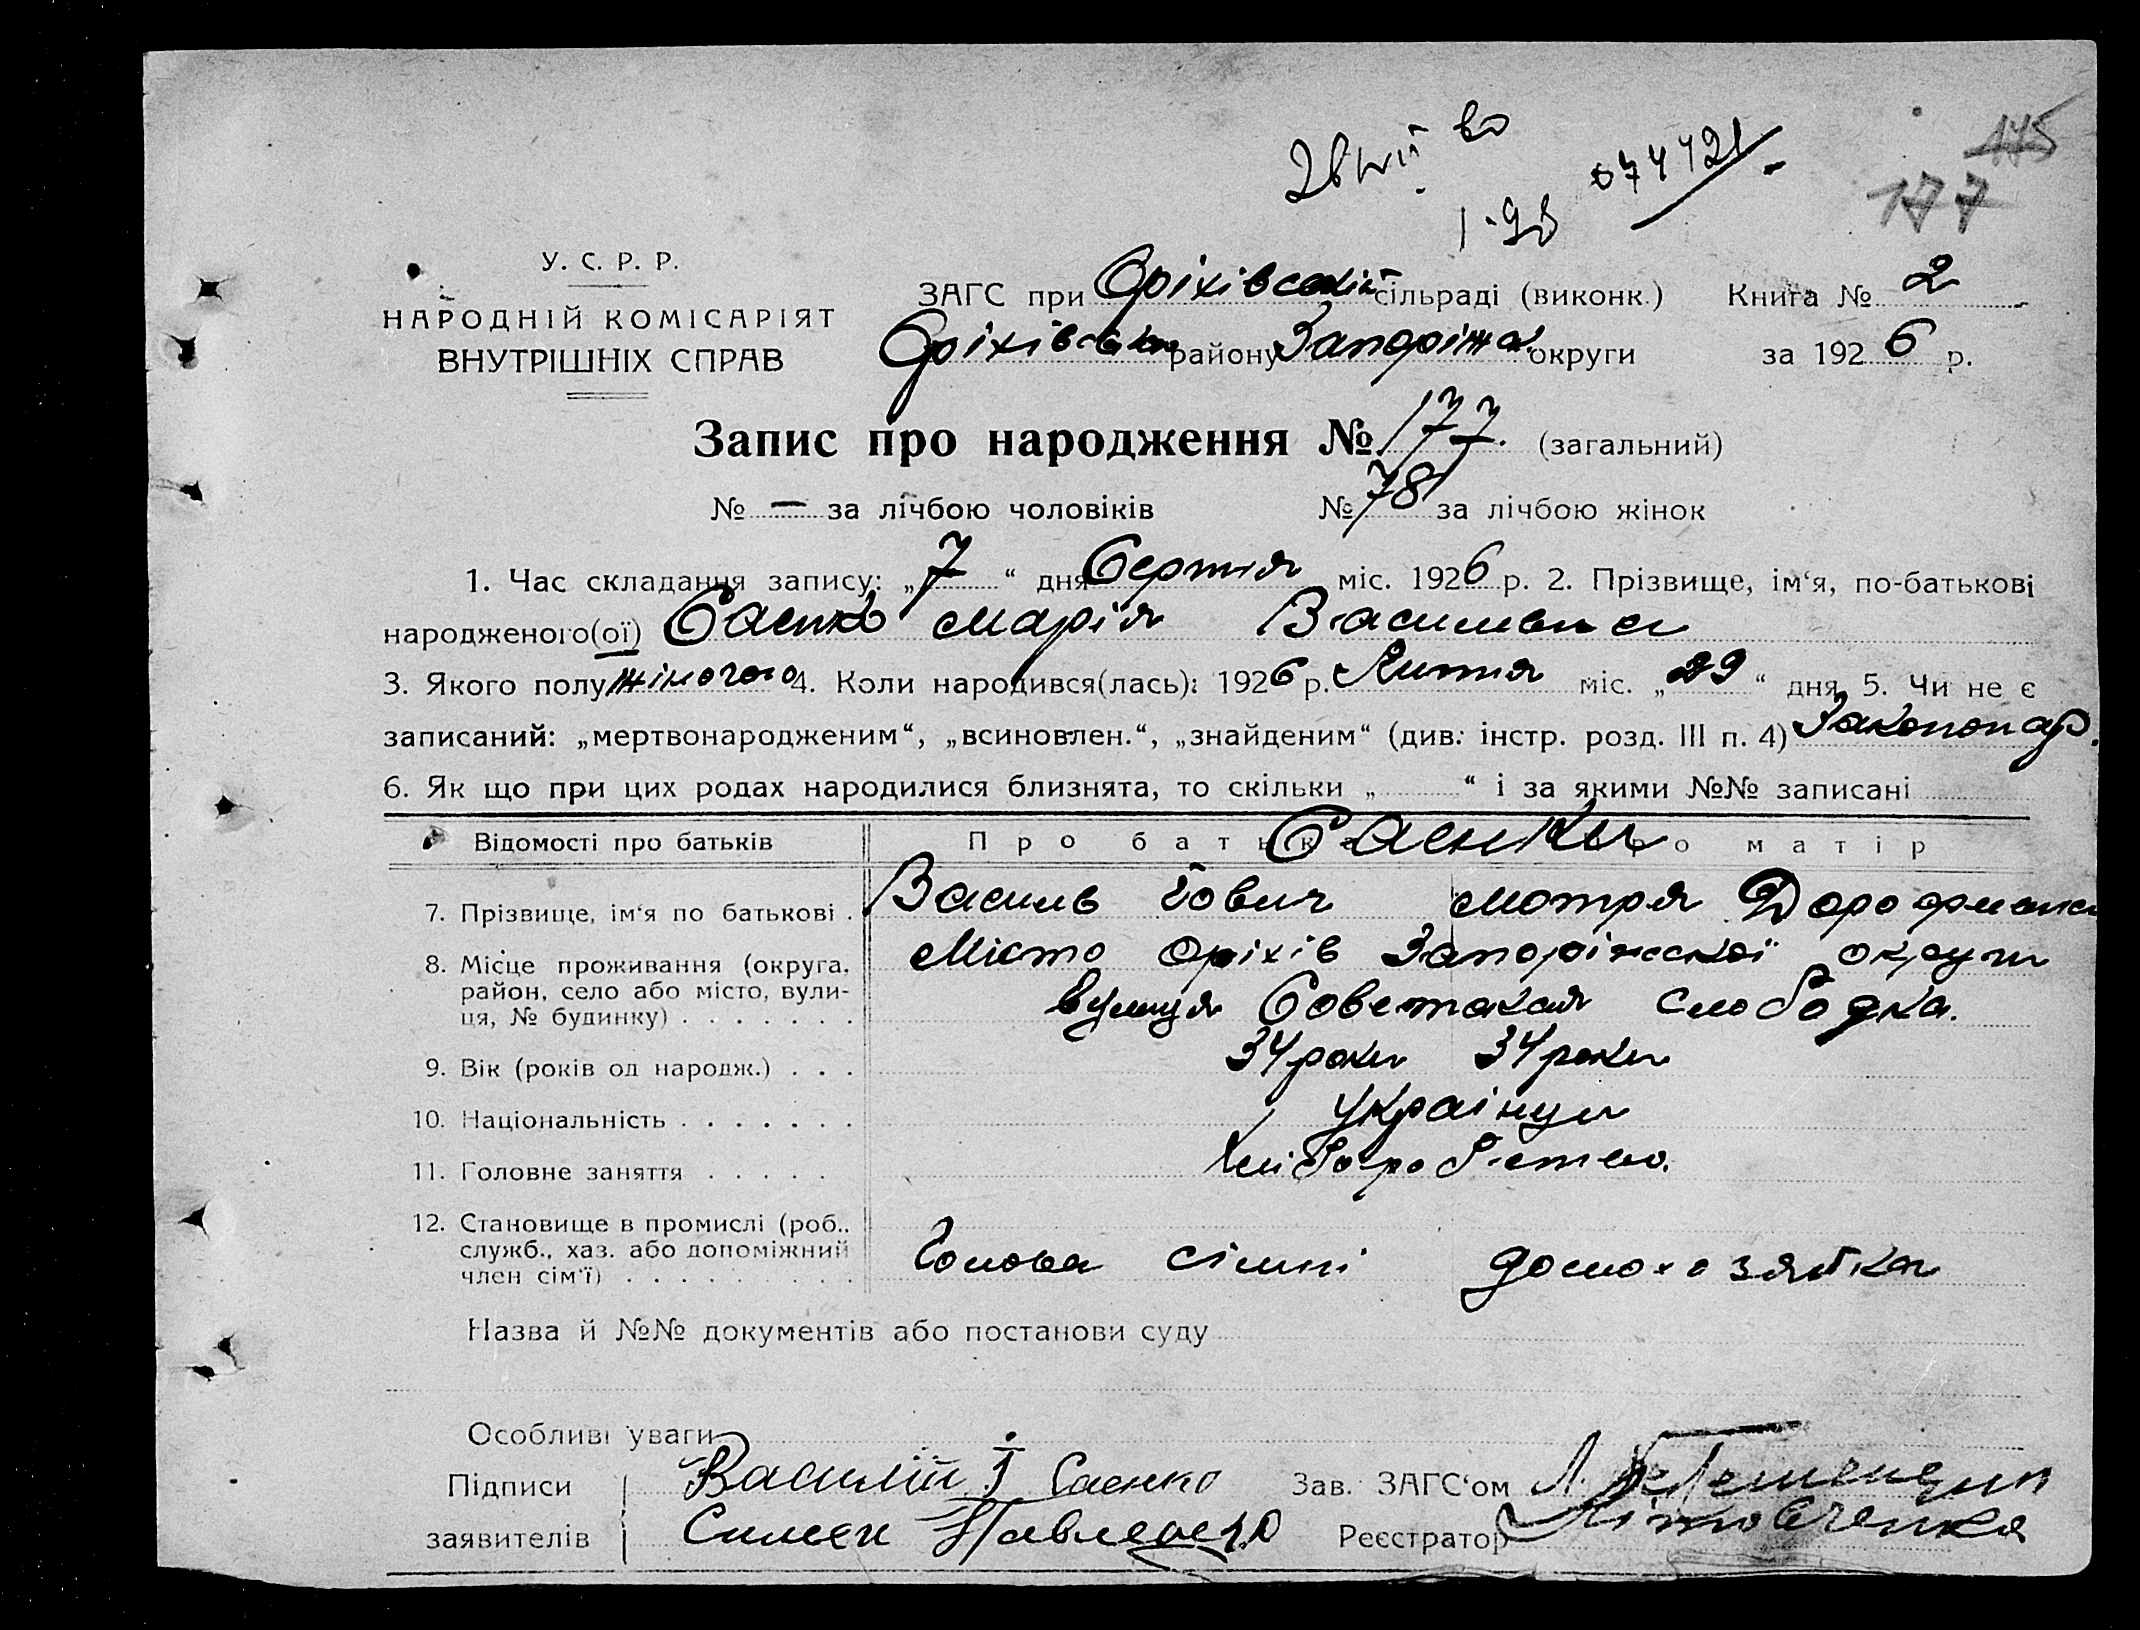 175
177
074421
1-98
У. С. Р. Р.
НАРОДНІЙ КОМІСАРІЯТ
ВНУТРІШНІХ СПРАВ
ЗАГС при Оріхівській сільраді (виконк.) Книга № 2
Оріхівськ району Запоріжж округи за 1926 р.
Запис про народження № 177. (загальний)
№ — за лічбою чоловіків № 78 за лічбою жінок
1. Час складання запису: „7“ дня Серпня міс. 1926 р. 2. Прізвище, ім‘я, по-батькові
народженого(ої) Саєнко Марія Васильвна
3. Якого полу жіночого 4. Коли народився(лась): 1926 р. Липня міс. „29“ дня 5. Чи не є
записаний: „мертвонародженим“, „всиновлен.“, „знайденим“ (див: інстр. розд. III п. 4) Законнонар.
6. Як що при цих родах народилися близнята, то скільки „ “ і за якими №№ записані
Відомості про батьків Про батька Про матір
Саєнки
7. Прізвище, ім‘я по батькові . Василь Йович Мотря Дорофиївна
8. Місце проживання (округа, Місто Оріхів Запоріжської округи
район, село або місто, вули-
ця, № будинку) . . . . . . . вулиця Советская слободка.
9. Вік (років од народж.) . . . 34 роки 34 роки
10. Національність . . . . . . . українци
11. Головне заняття . . . . . Хліборобством.
12. Становище в промислі (роб.,
служб., хаз. або допоміжний
член сім‘ї) . . . . . . . . . Голова сімні домохозяйка
Назва й №№ документів або постанови суду
Особливі уваги
Підписи Василій І Саєнко Зав. ЗАГС‘ом
заявителів Симеон Реєстратор